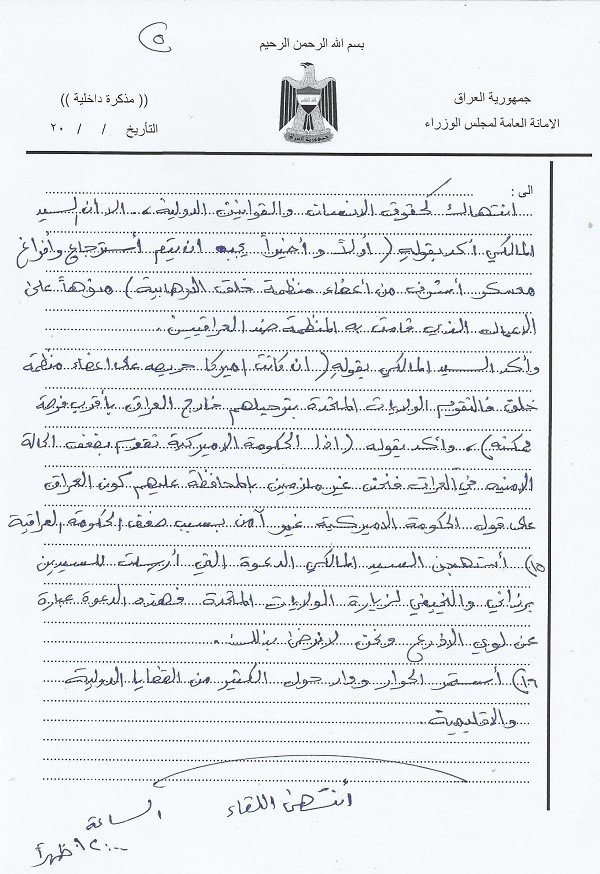 ٥
بسم الله الرحمن الرحيم
جمهورية العراق
(( مذكرة داخلية ))
الامانة العامة لمجلس الوزراء
التأريخ / / ٢٠
جمهورية العراق
الى :
انتهاك لحقوق الانسان والقوانين الدولية ، الا ان السيد
المالكي أكد بقوله ( أولاً و أخيراً يجب ان يتم أسترجاع وأفراغ
معسكر أشرف من أعضاء منظمة خلق الارهابية ) منوهاً على
الاعمال الذي قامت به المنظمة ضد العراقيين .
وأكد السيد المالكي بقوله ( ان كانت اميركا حريصه على اعضاء منظمة
خلق فالتقوم الولايات المتحدة بترحيلهم خارج العراق بأقرب فرصة
ممكنه ) ، وأكد بقوله ( اذا الحكومة الاميركية تقوم بضعف الحالة
الامنيه في العراق فنحن غير ملزمين بالمحافظة عليهم كون العراق
على قول الحكومة الاميركية غير آمن بسبب ضعف الحكومة العراقية
١٥) أستهجن السيد المالكي الدعوة التي أرسلت للسيدين
برزاني والنجيفي لزيارة الولايات المتحدة فهذه الدعوة عبارة
عن لوي الاذرع ونحن لا نرضى بذلك .
١٦) أستمر الحوار ودار حول الكثير من القضايا الدولية
والاقليمية .
أنتهى اللقاء
الساعة
١٢:٠٠ ظهراً